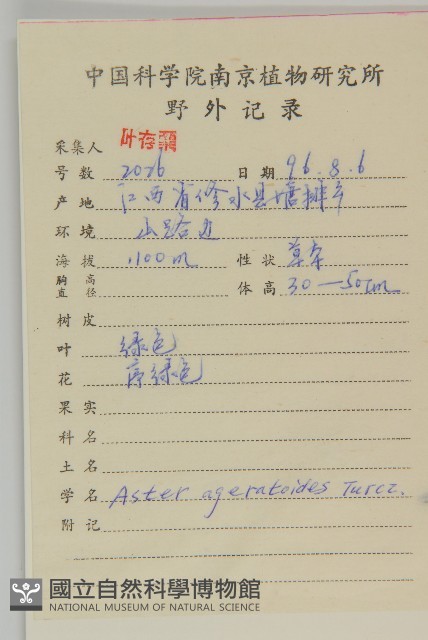 中国科学院南京植物研究所
野外记录
采集人 叶存粟
号数 2026 日期 96.8.6
产地 江西省修水县塘排
环境 山路边
海拔 1100m 性状 草本
胸高直径 体高 30—50cm
树皮
叶 绿色
花 绿色
果实
科名
土名
学名 Aster ageratoides Turcz.
附记
國立自然科學博物館
NATIONAL MUSEUM OF NATURAL SCIENCE